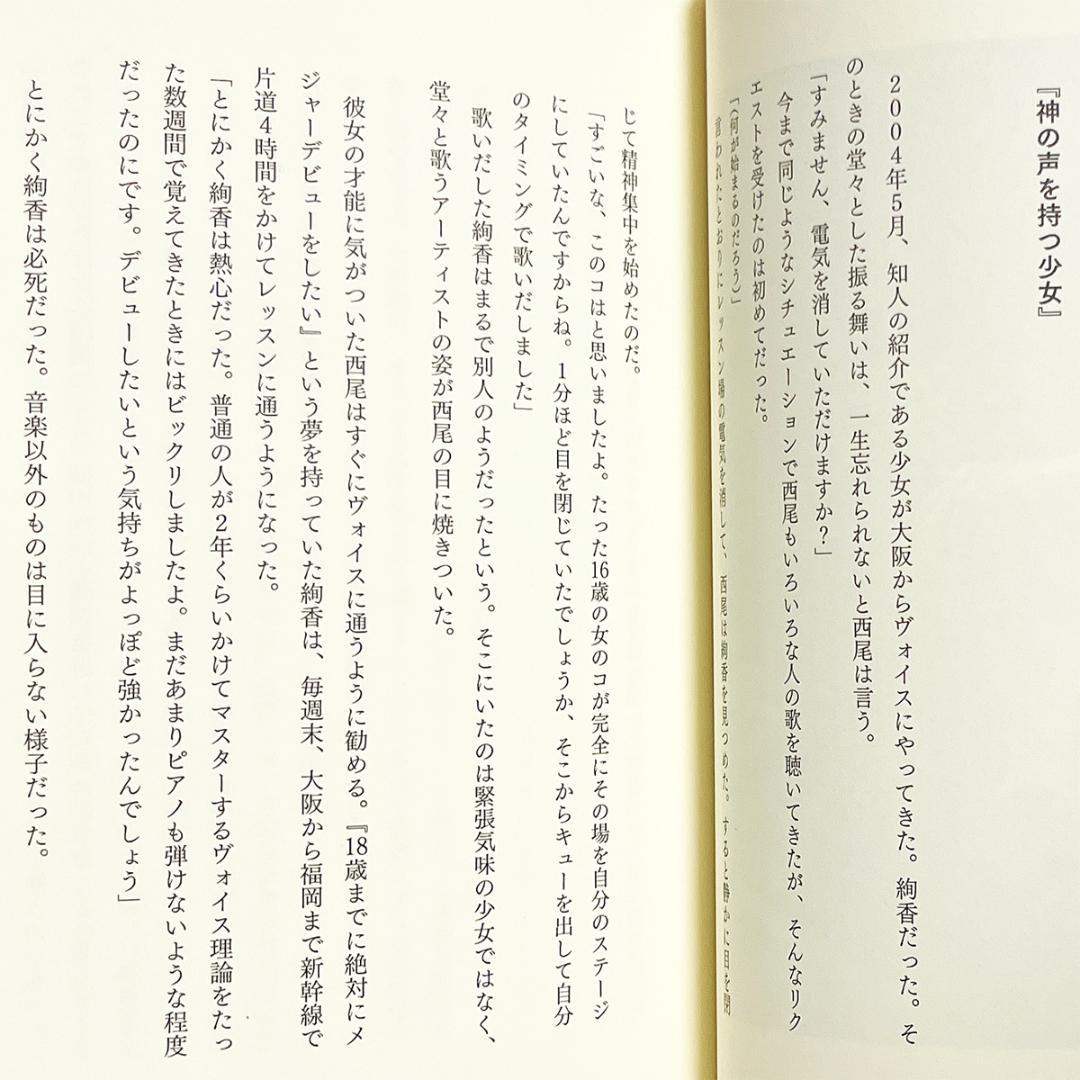 『神の声を持つ少女』
2004年5月、知人の紹介である少女が大阪からヴォイスにやってきた。絢香だった。そ
のときの堂々とした振る舞いは、一生忘れられないと西尾は言う。
「すみません、電気を消していただけますか?」
今まで同じようなシチュエーションで西尾もいろいろな人の歌を聴いてきたが、そんなリク
エストを受けたのは初めてだった。
「(何が始まるのだろう)」
言われたとおりにレッスン場の電気を消して、西尾は絢香を見つめた。すると静かに目を閉
じて精神集中を始めたのだ。
「すごいな、このコはと思いましたよ。たった16歳の女のコが完全にその場を自分のステージ
にしていたんですからね。1分ほど目を閉じていたでしょうか、そこからキューを出して自分
のタイミングで歌いだしました」
歌いだした絢香はまるで別人のようだったという。そこにいたのは緊張気味の少女ではなく、
堂々と歌うアーティストの姿が西尾の目に焼きついた。
彼女の才能に気がついた西尾はすぐにヴォイスに通うように勧める。『18歳までに絶対にメ
ジャーデビューをしたい』という夢を持っていた絢香は、毎週末、大阪から福岡まで新幹線で
片道4時間をかけてレッスンに通うようになった。
「とにかく絢香は熱心だった。普通の人が2年くらいかけてマスターするヴォイス理論をたっ
た数週間で覚えてきたときにはビックリしましたよ。まだあまりピアノも弾けないような程度
だったのにです。デビューしたいという気持ちがよっぽど強かったんでしょう」
とにかく絢香は必死だった。音楽以外のものは目に入らない様子だった。